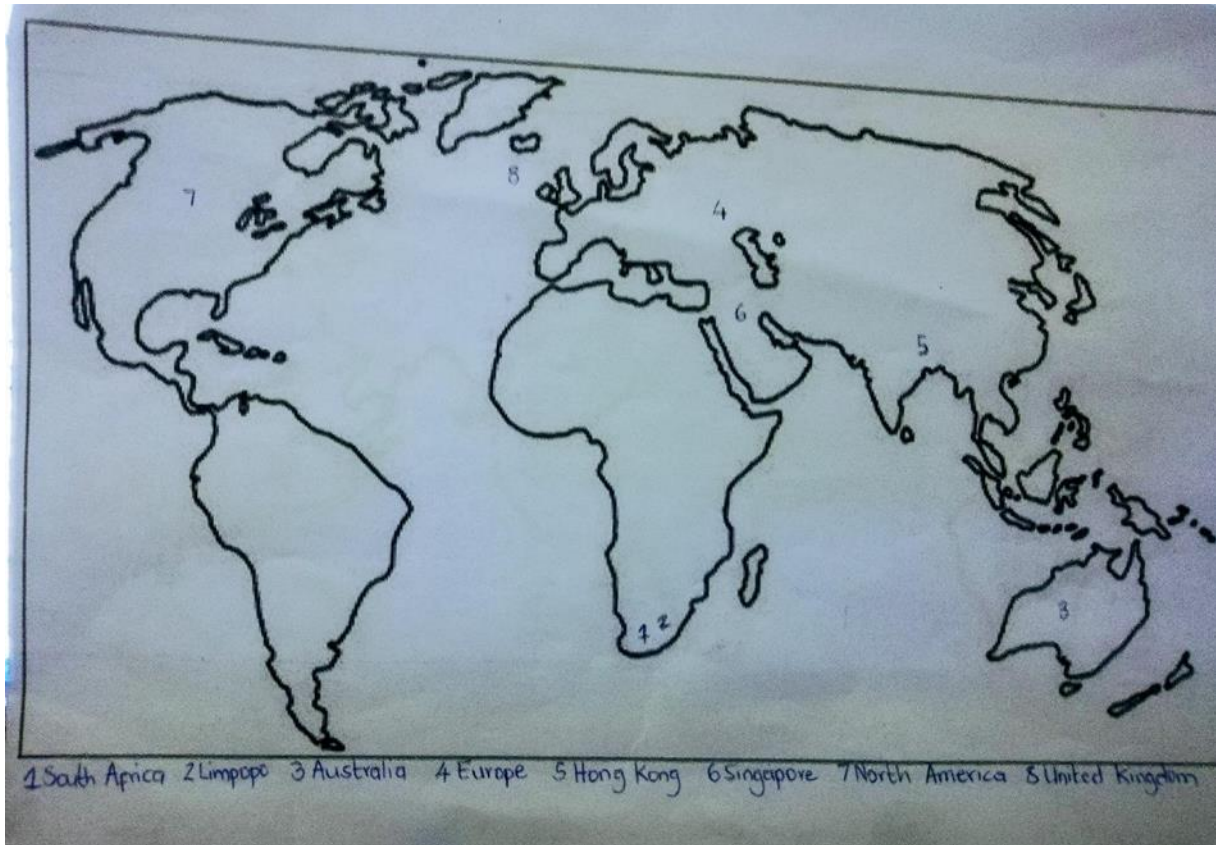 8
7
4
6
5
3
1 2
1 South Africa 2 Limpopo 3 Australia 4 Europe 5 Hong Kong 6 Singapore 7 North America 8 United Kingdom